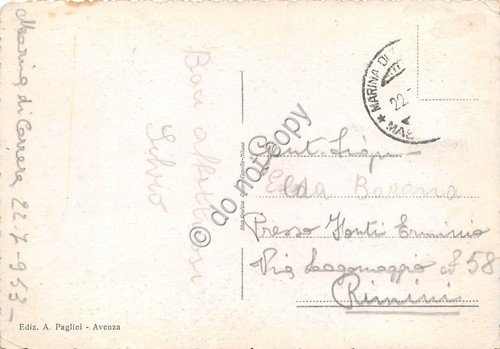 Marina di Carrara 22-7-953-
Baci affettuosi
Silvio
MARINA DI
22.
MAS
Gent. Sig.na
Elda
Presso Fonti Erminio
Via Lagomaggio N° 58
Rimini
Ediz. A. Paglini - Avenza
© do not copy